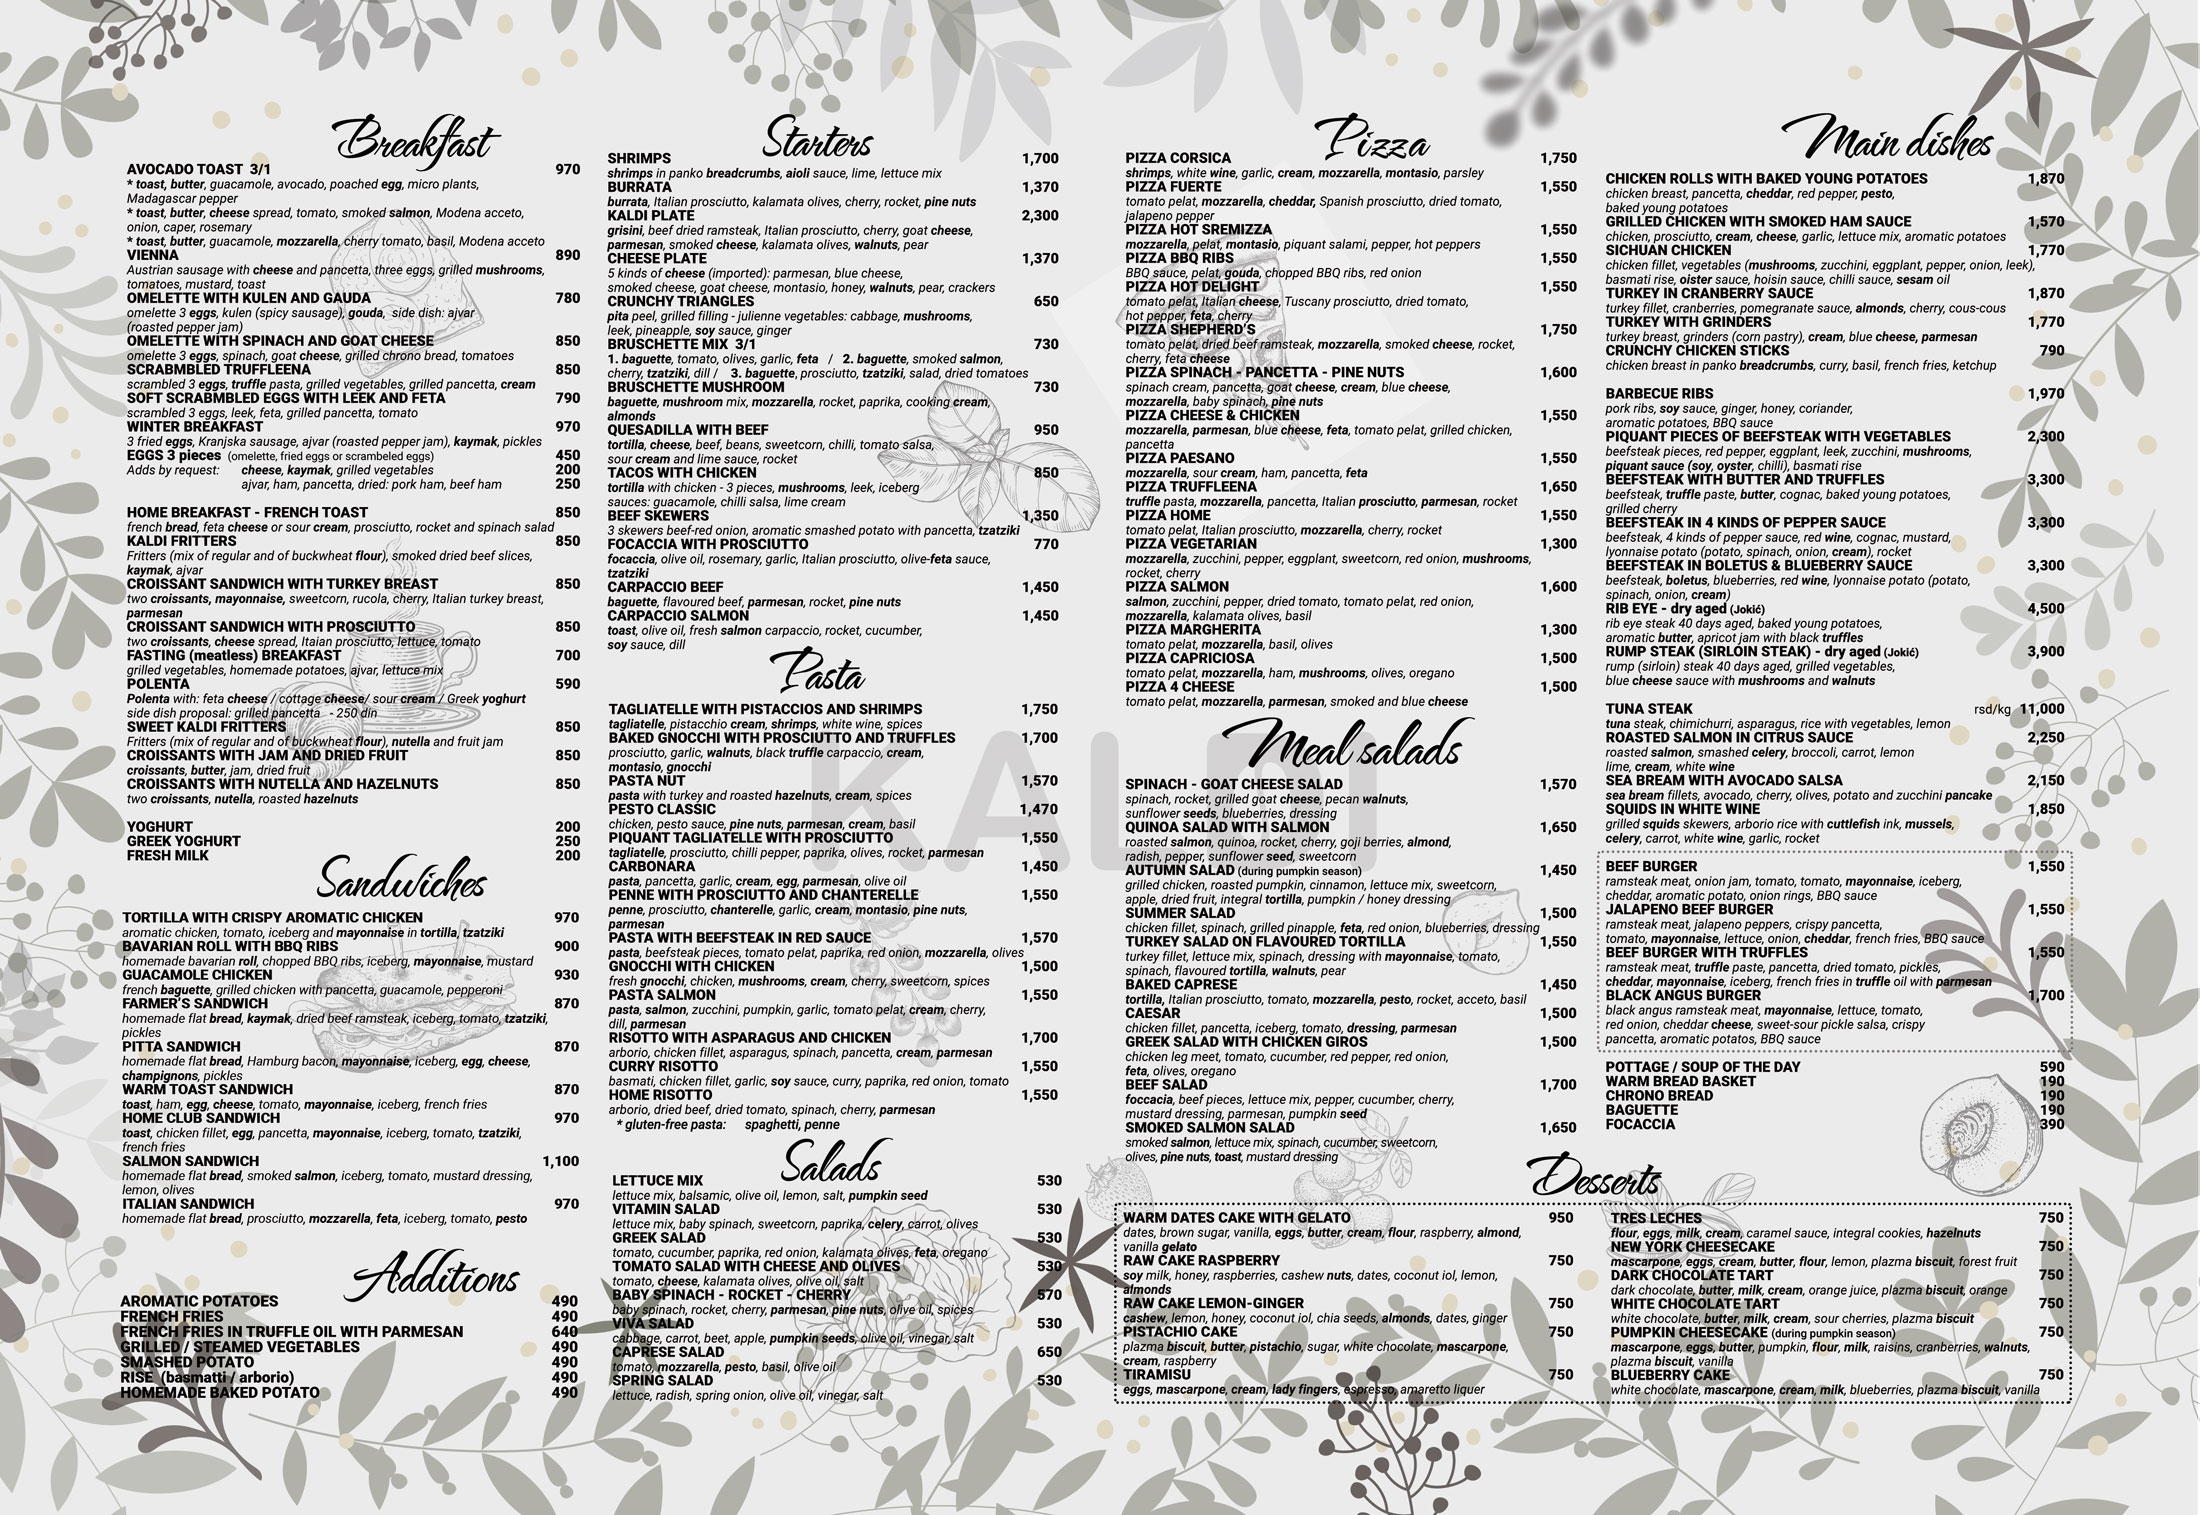 Breakfast
AVOCADO TOAST 3/1 970
* toast, butter, guacamole, avocado, poached egg, micro plants,
Madagascar pepper
* toast, butter, cheese spread, tomato, smoked salmon, Modena acceto,
onion, caper, rosemary
* toast, butter, guacamole, mozzarella, cherry tomato, basil, Modena acceto
VIENNA 890
Austrian sausage with cheese and pancetta, three eggs, grilled mushrooms,
tomatoes, mustard, toast
OMELETTE WITH KULEN AND GAUDA 780
omelette 3 eggs, kulen (spicy sausage), gouda, side dish: ajvar
(roasted pepper jam)
OMELETTE WITH SPINACH AND GOAT CHEESE 850
omelette 3 eggs, spinach, goat cheese, grilled chrono bread, tomatoes
SCRABMBLED TRUFFLEENA 850
scrambled 3 eggs, truffle pasta, grilled vegetables, grilled pancetta, cream
SOFT SCRABMBLED EGGS WITH LEEK AND FETA 790
scrambled 3 eggs, leek, feta, grilled pancetta, tomato
WINTER BREAKFAST 970
3 fried eggs, Kranjska sausage, ajvar (roasted pepper jam), kaymak, pickles
EGGS 3 pieces (omelette, fried eggs or scrambeled eggs) 450
Adds by request: cheese, kaymak, grilled vegetables 200
ajvar, ham, pancetta, dried: pork ham, beef ham 250
HOME BREAKFAST - FRENCH TOAST 850
french bread, feta cheese or sour cream, prosciutto, rocket and spinach salad
KALDI FRITTERS 850
Fritters (mix of regular and of buckwheat flour), smoked dried beef slices,
kaymak, ajvar
CROISSANT SANDWICH WITH TURKEY BREAST 850
two croissants, mayonnaise, sweetcorn, rucola, cherry, Italian turkey breast,
parmesan
CROISSANT SANDWICH WITH PROSCIUTTO 850
two croissants, cheese spread, Itaian prosciutto, lettuce, tomato
FASTING (meatless) BREAKFAST 700
grilled vegetables, homemade potatoes, ajvar, lettuce mix
POLENTA 590
Polenta with: feta cheese / cottage cheese/ sour cream / Greek yoghurt
side dish proposal: grilled pancetta - 250 din
SWEET KALDI FRITTERS 850
Fritters (mix of regular and of buckwheat flour), nutella and fruit jam
CROISSANTS WITH JAM AND DRIED FRUIT 850
croissants, butter, jam, dried fruit
CROISSANTS WITH NUTELLA AND HAZELNUTS 850
two croissants, nutella, roasted hazelnuts
YOGHURT 200
GREEK YOGHURT 250
FRESH MILK 200
Sandwiches
TORTILLA WITH CRISPY AROMATIC CHICKEN 970
aromatic chicken, tomato, iceberg and mayonnaise in tortilla, tzatziki
BAVARIAN ROLL WITH BBQ RIBS 900
homemade bavarian roll, chopped BBQ ribs, iceberg, mayonnaise, mustard
GUACAMOLE CHICKEN 930
french baguette, grilled chicken with pancetta, guacamole, pepperoni
FARMER'S SANDWICH 870
homemade flat bread, kaymak, dried beef ramsteak, iceberg, tomato, tzatziki,
pickles
PITTA SANDWICH 870
homemade flat bread, Hamburg bacon, mayonnaise, iceberg, egg, cheese,
champignons, pickles
WARM TOAST SANDWICH 870
toast, ham, egg, cheese, tomato, mayonnaise, iceberg, french fries
HOME CLUB SANDWICH 970
toast, chicken fillet, egg, pancetta, mayonnaise, iceberg, tomato, tzatziki,
french fries
SALMON SANDWICH 1,100
homemade flat bread, smoked salmon, iceberg, tomato, mustard dressing,
lemon, olives
ITALIAN SANDWICH 970
homemade flat bread, prosciutto, mozzarella, feta, iceberg, tomato, pesto
Additions
AROMATIC POTATOES 490
FRENCH FRIES 490
FRENCH FRIES IN TRUFFLE OIL WITH PARMESAN 640
GRILLED / STEAMED VEGETABLES 490
SMASHED POTATO 490
RISE (basmatti / arborio) 490
HOMEMADE BAKED POTATO 490
Starters
SHRIMPS 1,700
shrimps in panko breadcrumbs, aioli sauce, lime, lettuce mix
BURRATA 1,370
burrata, Italian prosciutto, kalamata olives, cherry, rocket, pine nuts
KALDI PLATE 2,300
grisini, beef dried ramsteak, Italian prosciutto, cherry, goat cheese,
parmesan, smoked cheese, kalamata olives, walnuts, pear
CHEESE PLATE 1,370
5 kinds of cheese (imported): parmesan, blue cheese,
smoked cheese, goat cheese, montasio, honey, walnuts, pear, crackers
CRUNCHY TRIANGLES 650
pita peel, grilled filling - julienne vegetables: cabbage, mushrooms,
leek, pineapple, soy sauce, ginger
BRUSCHETTE MIX 3/1 730
1. baguette, tomato, olives, garlic, feta / 2. baguette, smoked salmon,
cherry, tzatziki, dill / 3. baguette, prosciutto, tzatziki, salad, dried tomatoes
BRUSCHETTE MUSHROOM 730
baguette, mushroom mix, mozzarella, rocket, paprika, cooking cream,
almonds
QUESADILLA WITH BEEF 950
tortilla, cheese, beef, beans, sweetcorn, chilli, tomato salsa,
sour cream and lime sauce, rocket
TACOS WITH CHICKEN 850
tortilla with chicken - 3 pieces, mushrooms, leek, iceberg
sauces: guacamole, chilli salsa, lime cream
BEEF SKEWERS 1,350
3 skewers beef-red onion, aromatic smashed potato with pancetta, tzatziki
FOCACCIA WITH PROSCIUTTO 770
focaccia, olive oil, rosemary, garlic, Italian prosciutto, olive-feta sauce,
tzatziki
CARPACCIO BEEF 1,450
baguette, flavoured beef, parmesan, rocket, pine nuts
CARPACCIO SALMON 1,450
toast, olive oil, fresh salmon carpaccio, rocket, cucumber,
soy sauce, dill
Pasta
TAGLIATELLE WITH PISTACCIOS AND SHRIMPS 1,750
tagliatelle, pistacchio cream, shrimps, white wine, spices
BAKED GNOCCHI WITH PROSCIUTTO AND TRUFFLES 1,700
prosciutto, garlic, walnuts, black truffle carpaccio, cream,
montasio, gnocchi
PASTA NUT 1,570
pasta with turkey and roasted hazelnuts, cream, spices
PESTO CLASSIC 1,470
chicken, pesto sauce, pine nuts, parmesan, cream, basil
PIQUANT TAGLIATELLE WITH PROSCIUTTO 1,550
tagliatelle, prosciutto, chilli pepper, paprika, olives, rocket, parmesan
CARBONARA 1,450
pasta, pancetta, garlic, cream, egg, parmesan, olive oil
PENNE WITH PROSCIUTTO AND CHANTERELLE 1,550
penne, prosciutto, chanterelle, garlic, cream, montasio, pine nuts,
parmesan
PASTA WITH BEEFSTEAK IN RED SAUCE 1,570
pasta, beefsteak pieces, tomato pelat, paprika, red onion, mozzarella, olives
GNOCCHI WITH CHICKEN 1,500
fresh gnocchi, chicken, mushrooms, cream, cherry, sweetcorn, spices
PASTA SALMON 1,550
pasta, salmon, zucchini, pumpkin, garlic, tomato pelat, cream, cherry,
dill, parmesan
RISOTTO WITH ASPARAGUS AND CHICKEN 1,700
arborio, chicken fillet, asparagus, spinach, pancetta, cream, parmesan
CURRY RISOTTO 1,550
basmati, chicken fillet, garlic, soy sauce, curry, paprika, red onion, tomato
HOME RISOTTO 1,550
arborio, dried beef, dried tomato, spinach, cherry, parmesan
* gluten-free pasta: spaghetti, penne
Salads
LETTUCE MIX 530
lettuce mix, balsamic, olive oil, lemon, salt, pumpkin seed
VITAMIN SALAD 530
lettuce mix, baby spinach, sweetcorn, paprika, celery, carrot, olives
GREEK SALAD 530
tomato, cucumber, paprika, red onion, kalamata olives, feta, oregano
TOMATO SALAD WITH CHEESE AND OLIVES 530
tomato, cheese, kalamata olives, olive oil, salt
BABY SPINACH - ROCKET - CHERRY 570
baby spinach, rocket, cherry, parmesan, pine nuts, olive oil, spices
VIVA SALAD 530
cabbage, carrot, beet, apple, pumpkin seeds, olive oil, vinegar, salt
CAPRESE SALAD 650
tomato, mozzarella, pesto, basil, olive oil
SPRING SALAD 530
lettuce, radish, spring onion, olive oil, vinegar, salt
KALDI
Pizza
PIZZA CORSICA 1,750
shrimps, white wine, garlic, cream, mozzarella, montasio, parsley
PIZZA FUERTE 1,550
tomato pelat, mozzarella, cheddar, Spanish prosciutto, dried tomato,
jalapeno pepper
PIZZA HOT SREMIZZA 1,550
mozzarella, pelat, montasio, piquant salami, pepper, hot peppers
PIZZA BBQ RIBS 1,550
BBQ sauce, pelat, gouda, chopped BBQ ribs, red onion
PIZZA HOT DELIGHT 1,550
tomato pelat, Italian cheese, Tuscany prosciutto, dried tomato,
hot pepper, feta, cherry
PIZZA SHEPHERD'S 1,750
tomato pelat, dried beef ramsteak, mozzarella, smoked cheese, rocket,
cherry, feta cheese
PIZZA SPINACH - PANCETTA - PINE NUTS 1,600
spinach cream, pancetta, goat cheese, cream, blue cheese,
mozzarella, baby spinach, pine nuts
PIZZA CHEESE & CHICKEN 1,550
mozzarella, parmesan, blue cheese, feta, tomato pelat, grilled chicken,
pancetta
PIZZA PAESANO 1,550
mozzarella, sour cream, ham, pancetta, feta
PIZZA TRUFFLEENA 1,650
truffle pasta, mozzarella, pancetta, Italian prosciutto, parmesan, rocket
PIZZA HOME 1,550
tomato pelat, Italian prosciutto, mozzarella, cherry, rocket
PIZZA VEGETARIAN 1,300
mozzarella, zucchini, pepper, eggplant, sweetcorn, red onion, mushrooms,
rocket, cherry
PIZZA SALMON 1,600
salmon, zucchini, pepper, dried tomato, tomato pelat, red onion,
mozzarella, kalamata olives, basil
PIZZA MARGHERITA 1,300
tomato pelat, mozzarella, basil, olives
PIZZA CAPRICIOSA 1,500
tomato pelat, mozzarella, ham, mushrooms, olives, oregano
PIZZA 4 CHEESE 1,500
tomato pelat, mozzarella, parmesan, smoked and blue cheese
Meal salads
SPINACH - GOAT CHEESE SALAD 1,570
spinach, rocket, grilled goat cheese, pecan walnuts,
sunflower seeds, blueberries, dressing
QUINOA SALAD WITH SALMON 1,650
roasted salmon, quinoa, rocket, cherry, goji berries, almond,
radish, pepper, sunflower seed, sweetcorn
AUTUMN SALAD (during pumpkin season) 1,450
grilled chicken, roasted pumpkin, cinnamon, lettuce mix, sweetcorn,
apple, dried fruit, integral tortilla, pumpkin / honey dressing
SUMMER SALAD 1,500
chicken fillet, spinach, grilled pinapple, feta, red onion, blueberries, dressing
TURKEY SALAD ON FLAVOURED TORTILLA 1,550
turkey fillet, lettuce mix, spinach, dressing with mayonnaise, tomato,
spinach, flavoured tortilla, walnuts, pear
BAKED CAPRESE 1,450
tortilla, Italian prosciutto, tomato, mozzarella, pesto, rocket, acceto, basil
CAESAR 1,500
chicken fillet, pancetta, iceberg, tomato, dressing, parmesan
GREEK SALAD WITH CHICKEN GIROS 1,500
chicken leg meet, tomato, cucumber, red pepper, red onion,
feta, olives, oregano
BEEF SALAD 1,700
foccacia, beef pieces, lettuce mix, pepper, cucumber, cherry,
mustard dressing, parmesan, pumpkin seed
SMOKED SALMON SALAD 1,650
smoked salmon, lettuce mix, spinach, cucumber, sweetcorn,
olives, pine nuts, toast, mustard dressing
Main dishes
CHICKEN ROLLS WITH BAKED YOUNG POTATOES 1,870
chicken breast, pancetta, cheddar, red pepper, pesto,
baked young potatoes
GRILLED CHICKEN WITH SMOKED HAM SAUCE 1,570
chicken, prosciutto, cream, cheese, garlic, lettuce mix, aromatic potatoes
SICHUAN CHICKEN 1,770
chicken fillet, vegetables (mushrooms, zucchini, eggplant, pepper, onion, leek),
basmati rise, oister sauce, hoisin sauce, chilli sauce, sesam oil
TURKEY IN CRANBERRY SAUCE 1,870
turkey fillet, cranberries, pomegranate sauce, almonds, cherry, cous-cous
TURKEY WITH GRINDERS 1,770
turkey breast, grinders (corn pastry), cream, blue cheese, parmesan
CRUNCHY CHICKEN STICKS 790
chicken breast in panko breadcrumbs, curry, basil, french fries, ketchup
BARBECUE RIBS 1,970
pork ribs, soy sauce, ginger, honey, coriander,
aromatic potatoes, BBQ sauce
PIQUANT PIECES OF BEEFSTEAK WITH VEGETABLES 2,300
beefsteak pieces, red pepper, eggplant, leek, zucchini, mushrooms,
piquant sauce (soy, oyster, chilli), basmati rise
BEEFSTEAK WITH BUTTER AND TRUFFLES 3,300
beefsteak, truffle paste, butter, cognac, baked young potatoes,
grilled cherry
BEEFSTEAK IN 4 KINDS OF PEPPER SAUCE 3,300
beefsteak, 4 kinds of pepper sauce, red wine, cognac, mustard,
lyonnaise potato (potato, spinach, onion, cream), rocket
BEEFSTEAK IN BOLETUS & BLUEBERRY SAUCE 3,300
beefsteak, boletus, blueberries, red wine, lyonnaise potato (potato,
spinach, onion, cream)
RIB EYE - dry aged (Jokić) 4,500
rib eye steak 40 days aged, baked young potatoes,
aromatic butter, apricot jam with black truffles
RUMP STEAK (SIRLOIN STEAK) - dry aged (Jokić) 3,900
rump (sirloin) steak 40 days aged, grilled vegetables,
blue cheese sauce with mushrooms and walnuts
TUNA STEAK rsd/kg 11,000
tuna steak, chimichurri, asparagus, rice with vegetables, lemon
ROASTED SALMON IN CITRUS SAUCE 2,250
roasted salmon, smashed celery, broccoli, carrot, lemon
lime, cream, white wine
SEA BREAM WITH AVOCADO SALSA 2,150
sea bream fillets, avocado, cherry, olives, potato and zucchini pancake
SQUIDS IN WHITE WINE 1,850
grilled squids skewers, arborio rice with cuttlefish ink, mussels,
celery, carrot, white wine, garlic, rocket
BEEF BURGER 1,550
ramsteak meat, onion jam, tomato, tomato, mayonnaise, iceberg,
cheddar, aromatic potato, onion rings, BBQ sauce
JALAPENO BEEF BURGER 1,550
ramsteak meat, jalapeno peppers, crispy pancetta,
tomato, mayonnaise, lettuce, onion, cheddar, french fries, BBQ sauce
BEEF BURGER WITH TRUFFLES 1,550
ramsteak meat, truffle paste, pancetta, dried tomato, pickles,
cheddar, mayonnaise, iceberg, french fries in truffle oil with parmesan
BLACK ANGUS BURGER 1,700
black angus ramsteak meat, mayonnaise, lettuce, tomato,
red onion, cheddar cheese, sweet-sour pickle salsa, crispy
pancetta, aromatic potatos, BBQ sauce
POTTAGE / SOUP OF THE DAY 590
WARM BREAD BASKET 190
CHRONO BREAD 190
BAGUETTE 190
FOCACCIA 390
Desserts
WARM DATES CAKE WITH GELATO 950
dates, brown sugar, vanilla, eggs, butter, cream, flour, raspberry, almond,
vanilla gelato
RAW CAKE RASPBERRY 750
soy milk, honey, raspberries, cashew nuts, dates, coconut iol, lemon,
almonds
RAW CAKE LEMON-GINGER 750
cashew, lemon, honey, coconut iol, chia seeds, almonds, dates, ginger
PISTACHIO CAKE 750
plazma biscuit, butter, pistachio, sugar, white chocolate, mascarpone,
cream, raspberry
TIRAMISU 750
eggs, mascarpone, cream, lady fingers, espresso, amaretto liquer
TRES LECHES 750
flour, eggs, milk, cream, caramel sauce, integral cookies, hazelnuts
NEW YORK CHEESECAKE 750
mascarpone, eggs, cream, butter, flour, lemon, plazma biscuit, forest fruit
DARK CHOCOLATE TART 750
dark chocolate, butter, milk, cream, orange juice, plazma biscuit, orange
WHITE CHOCOLATE TART 750
white chocolate, butter, milk, cream, sour cherries, plazma biscuit
PUMPKIN CHEESECAKE (during pumpkin season) 750
mascarpone, eggs, butter, pumpkin, flour, milk, raisins, cranberries, walnuts,
plazma biscuit, vanilla
BLUEBERRY CAKE 750
white chocolate, mascarpone, cream, milk, blueberries, plazma biscuit, vanilla